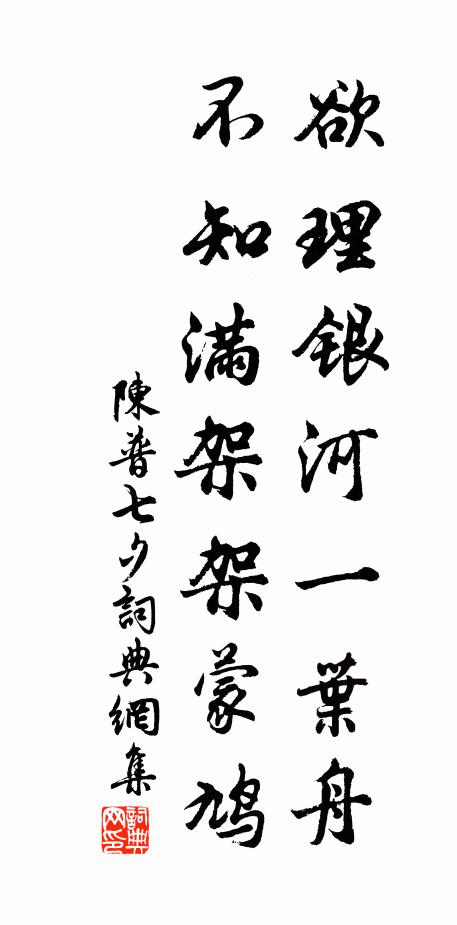 欲理銀河一葉舟
不知滿架架蒙鳩
陳普七夕詞典網集
詞典网印